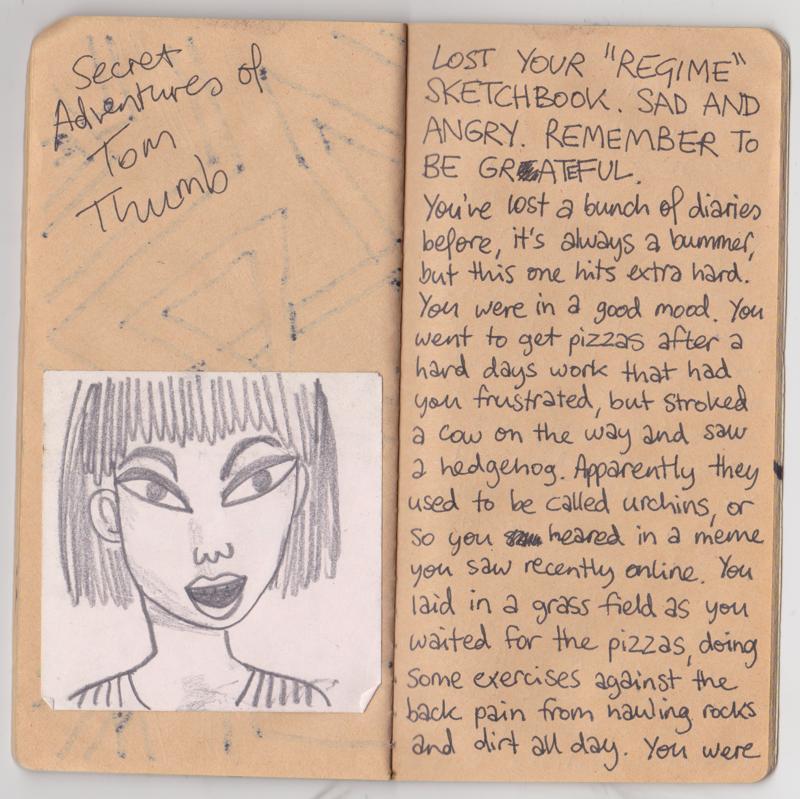 Secret
Adventures of
Tom
Thumb
LOST YOUR "REGIME"
SKETCHBOOK. SAD AND
ANGRY. REMEMBER TO
BE GREATEFUL.
You've lost a bunch of diaries
before, it's always a bummer,
but this one hits extra hard.
You were in a good mood. You
went to get pizzas after a
hard days work that had
you frustrated, but stroked
a cow on the way and saw
a hedgehog. Apparently they
used to be called urchins, or
so you heared in a meme
you saw recently online. You
laid in a grass field as you
waited for the pizzas, doing
some exercises against the
back pain from hauling rocks
and dirt all day. You were